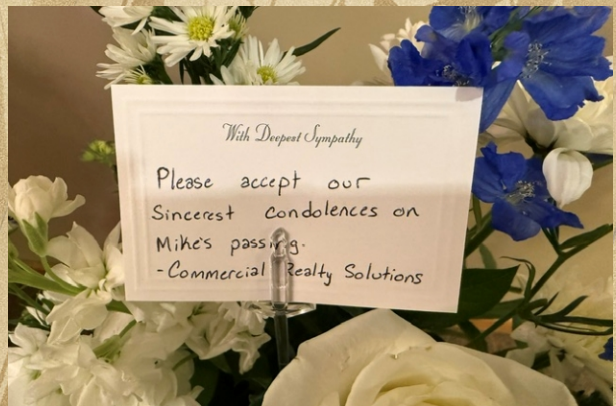 With Deepest Sympathy
Please accept our
Sincerest condolences on
Mike's passing.
-Commercial Realty Solutions